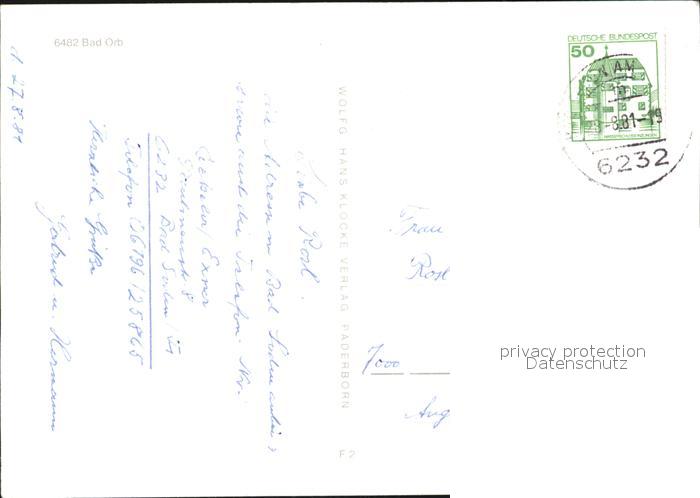 6482 Bad Orb
d 27.8.81
Liebe Rosl.
die Adresse in Bad Soden
sowie auch die Telefon Nr.:
6232 Bad Soden / Ts
Telefon 06196/25865
Herzliche Grüße
Gertrud u. Hermann
WOLFG. HANS KLOCKE VERLAG PADERBORN
F 2
DEUTSCHE BUNDESPOST
50
WASSERSCHLOSS INZLINGEN
-8.81-19
6232
Frau
Rosl
7000
Aug
privacy protection
Datenschutz